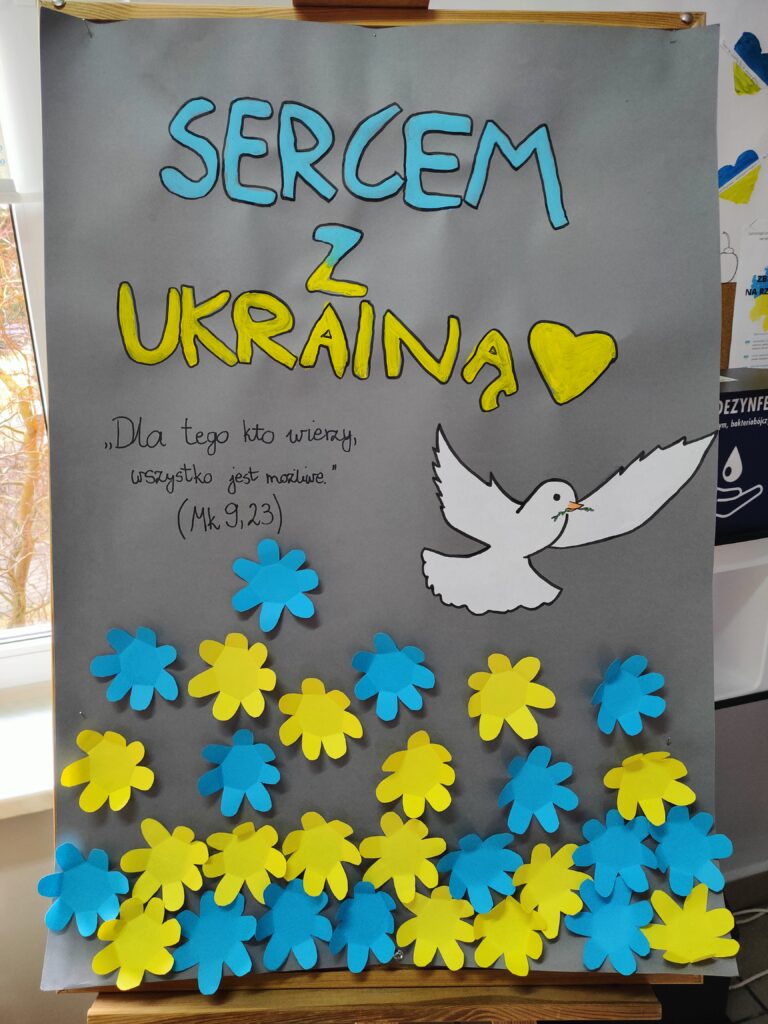 SERCEM
Z
UKRAINĄ
„Dla tego kto wierzy,
wszystko jest możliwe."
(Mk 9,23)
DEZYNFE
bakteriobójcz